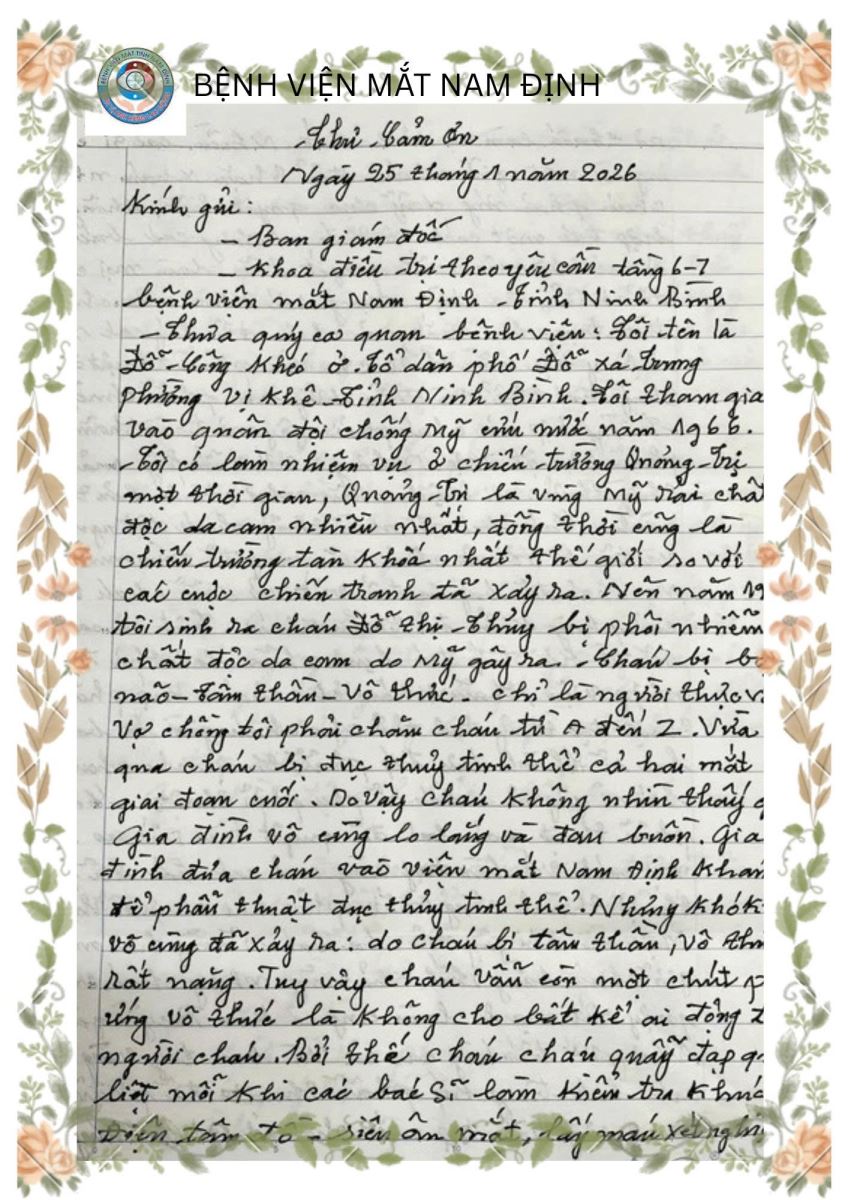 BỆNH VIỆN MẮT NAM ĐỊNH
Thư Cảm Ơn
Ngày 25 tháng 1 năm 2026
Kính gửi:
- Ban giám đốc
- Khoa điều trị theo yêu cầu tầng 6-7
bệnh viện mắt Nam Định - Tỉnh Ninh Bình
- Thưa quý cơ quan bệnh viện: Tôi tên là
Đỗ Công Khéo ở. Tổ dân phố Đỗ xá Trung
phường Vị Khê - Tỉnh Ninh Bình. Tôi tham gia
vào quân đội chống Mỹ cứu nước năm 1966.
Tôi có làm nhiệm vụ ở chiến trường Quảng Trị
một thời gian, Quảng Trị là vùng Mỹ rải chấ
độc da cam nhiều nhất, đồng thời cũng là
chiến trường tàn khốc nhất thế giới so với
các cuộc chiến tranh đã xảy ra. Nên năm 19
tôi sinh ra cháu Đỗ Thị Thủy bị phôi nhiễm
chất độc da cam do Mỹ gây ra. Cháu bị b
não - tâm thần - vô thức. chỉ là người thực v
Vợ chồng tôi phải chăm cháu từ A đến Z. Vừa
qua cháu bị đục thủy tinh thể cả hai mắt
giai đoạn cuối. Do vậy cháu không nhìn thấy
Gia đình vô cùng lo lắng và đau buồn. Gia
đình đưa cháu vào viện mắt Nam Định khám
để phẫu thuật đục thủy tinh thể. Nhưng khó k
vô cùng đã xảy ra: do cháu bị tâm thần, vô th
rất nặng. Tuy vậy cháu vẫn còn một chút p
ứng vô thức là không cho bất kể ai động
người cháu. Bởi thế cháu cháu quẫy đạp q
liệt mỗi khi các bác sĩ làm kiểm tra khúc
Điện tâm đồ - siêu âm mắt, lấy máu xét nghi